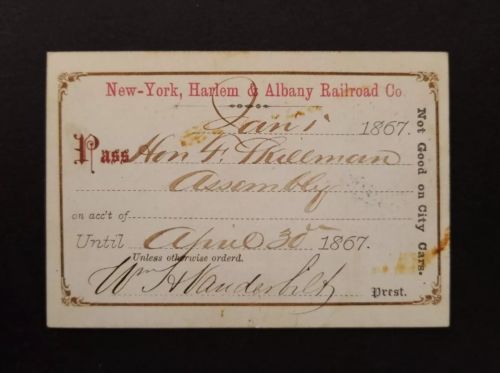 New-York, Harlem & Albany Railroad Co
Jan 1 1867.
Pass Hon F. Thillman
Assembly
on acc't of
Until April 30 1867.
Unless otherwise orderd.
Wm H Vanderbilt
Prest.
Not Good on City Cars.